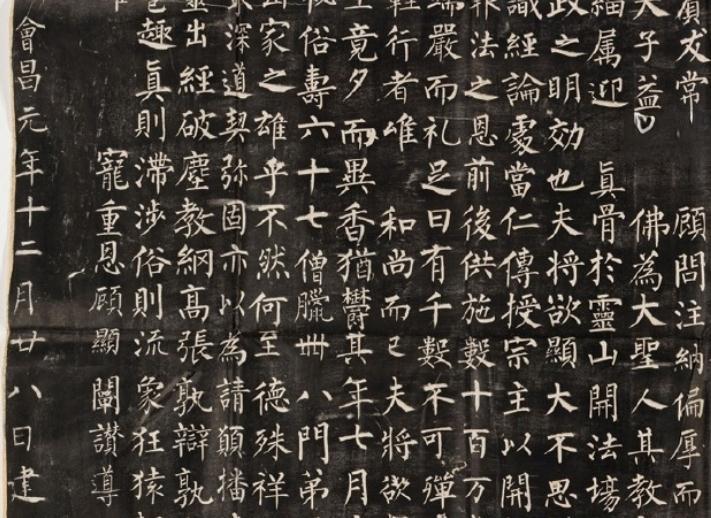 友常 顧問注納偏厚而
天子益 佛為大聖人其教
緇属迎 真骨於靈山開法場
政之明効也夫將欲顯大不思
識經論處當仁傳授宗主以開
法之恩前後供施數十百万
端嚴而礼足日有千數不可殫
輕行者唯 和尚而已夫將欲
竟夕而異香猶欝其年七月
俗壽六十七 僧臘卌八門弟
家之雄乎不然何至 德殊祥
深道契弥固亦以為請願播
出經破塵教網高張孰辯孰
趣真則滯涉俗則流象狂猿
寵重恩顧顯闡讃導
會昌元年十二月廿八日建